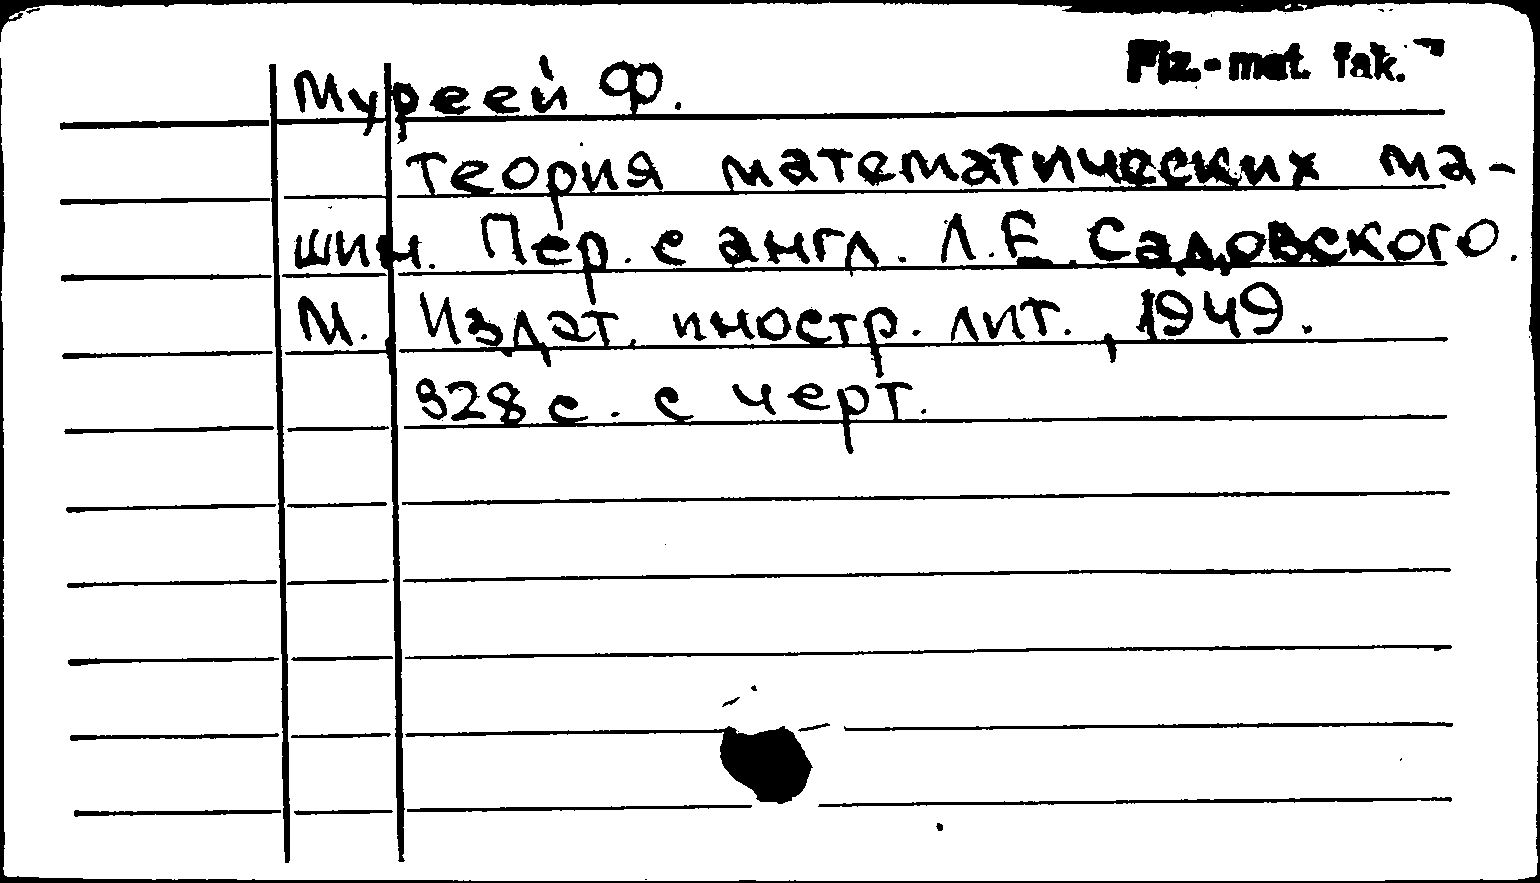 Fiz.-mat. fak.
Муреей Ф.
Теория математических ма-
шин. Пер. с англ. Л.Е. Садовского.
М., Издат. иностр. лит., 1949.
328 с. с черт.